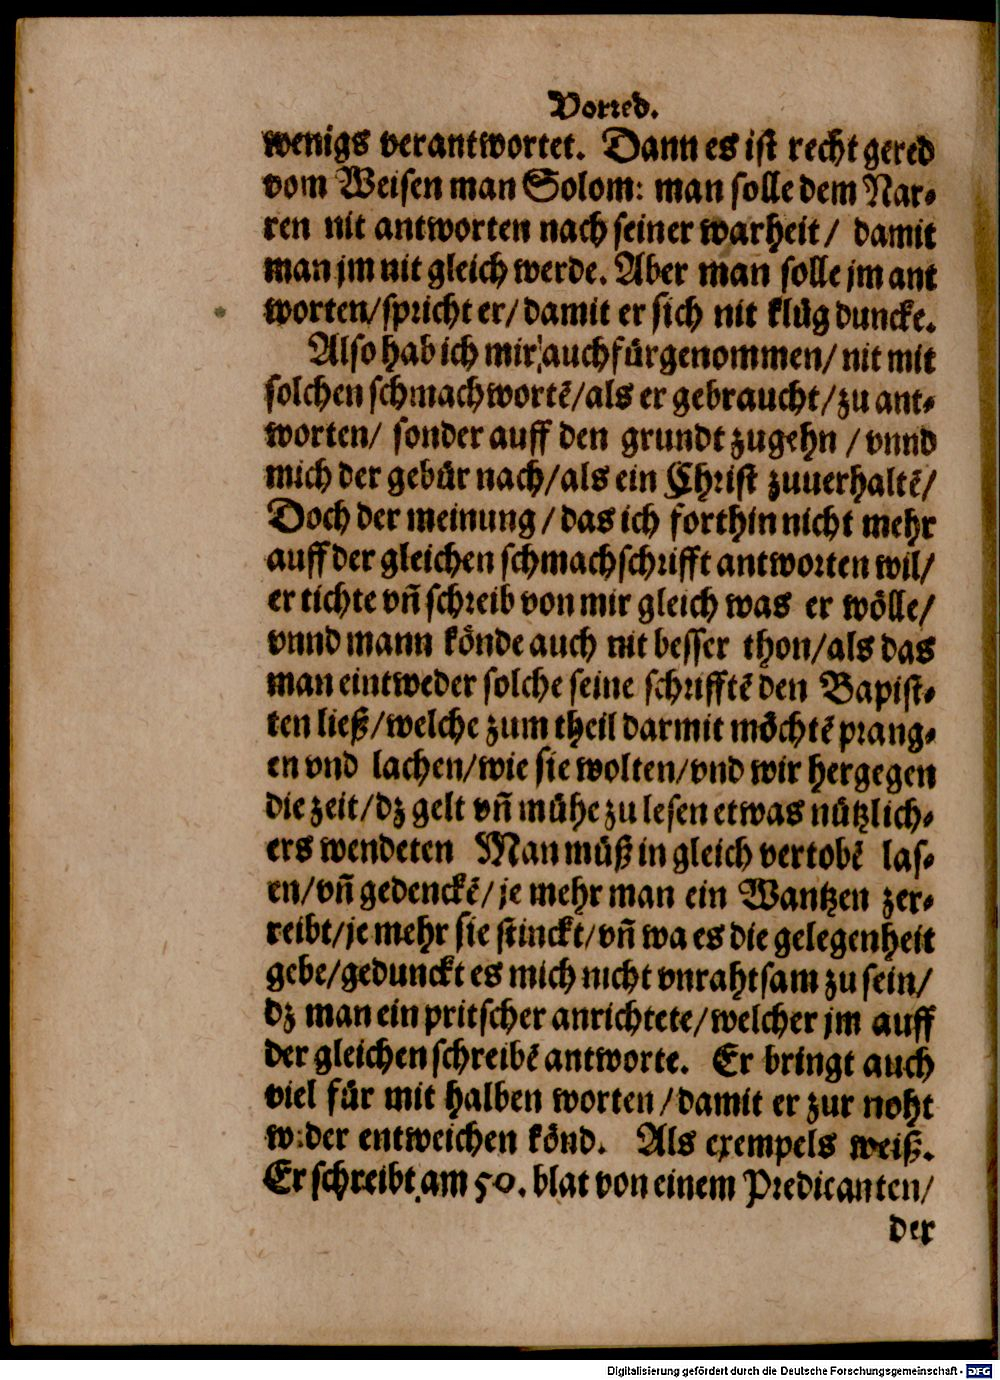 Vorred.
wenigs verantwortet. Dann es ist recht gered
vom Weisen man Solom: man solle dem Nar-
ren nit antworten nach seiner warheit/ damit
man jm nit gleich werde. Aber man solle jm ant
worten/spricht er/damit er sich nit klůg duncke.
Also hab ich mir auch fürgenommen/nit mit
solchen schmachwortē/als er gebraucht/zu ant-
worten/ sonder auff den grundt zugehn /vnnd
mich der gebür nach/als ein Christ zuuerhaltē/
Doch der meinung/das ich forthin nicht mehr
auff der gleichen schmachschrifft antworten wil/
er tichte vñ schreib von mir gleich was er wölle/
vnnd mann könde auch nit besser thon/als das
man eintweder solche seine schrifftē den Bapist-
ten ließ/welche zum theil darmit möchtē prang-
en vnd lachen/wie sie wolten/vnd wir hergegen
die zeit/dz gelt vñ mühe zu lesen etwas nützlich-
ers wendeten Man můß in gleich vertobē las-
en/vñ gedenckē/je mehr man ein Wantzen zer-
reibt/je mehr sie stinckt/vñ wa es die gelegenheit
gebe/gedunckt es mich nicht vnrahtsam zu sein/
dz man ein pritscher anrichtete/welcher jm auff
der gleichen schreibē antworte. Er bringt auch
viel für mit halben worten/damit er zur noht
wider entweichen könd. Als exempels weiß.
Er schreibt am 50. blat von einem Predicanten/
der
Digitalisierung gefördert durch die Deutsche Forschungsgemeinschaft - DFG